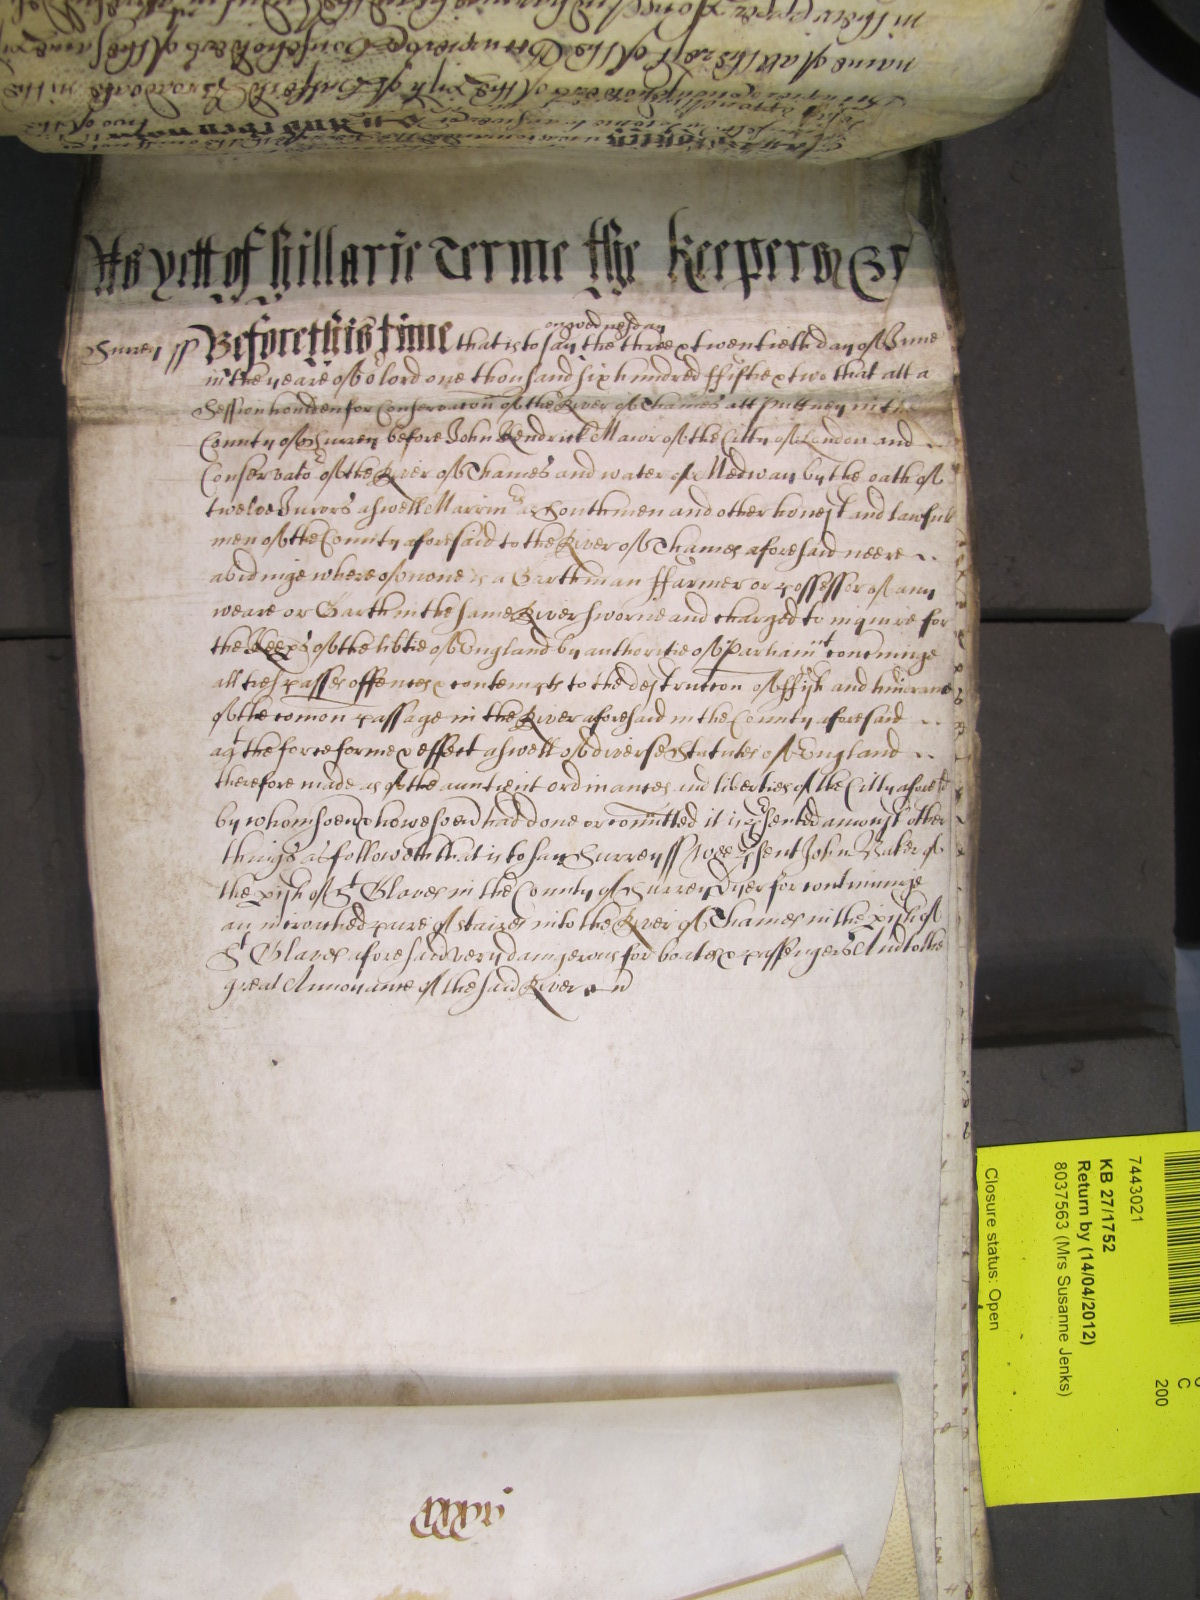 name of all the rest of the
As yett of Hillarie Terme the Keepers &c
Surrey ss Before this time that is to say on wednesday the three & twentieth day of June
in the yeare of o lord one thousand six hundred ffiftie & two that att a
Session houlden for Conservacon of the River of Thames att Puttney in the
County of Surrey before John Kendrick Maior of the Citty of London and
Conservato of the River of Thames and water of Medway by the oath of
twelve Jurors aswell Marrin as Southmen and other honest and lawfull
men of the County aforesaid to the River of Thames aforesaid neere
abidinge whereof none is a Garthman ffarmer or possessor of any
weare or Garth in the same River sworne and charged to inquire for
the Keeps of the libtie of England by authoritie of Parliamt concninge
all trespasses offences & contempts to the destruccon of ffish and
of the comon passage in the River aforesaid in the County aforesaid
agt the force forme & effect aswell of diverse Statutes of England
therefore made as of the auntient ordinances and liberties of the Citty aforesd
by whomsoevr & howsoevr had done or comitted it is psented amongst other
things as followeth that is to say Surrey ss Wee psent John Baker of
the pish of St Olaves in the County of Surrey Dyer for continuinge
an incroached paire of staires into the River of Thames in the pish of
St Olaves aforesaid very dangerous for boates & passengers And to the
great Annoyance of the said River
7443021
KB 27/1752
Return by (14/04/2012)
8037563 (Mrs Susanne Jenks)
Closure status: Open
C
200